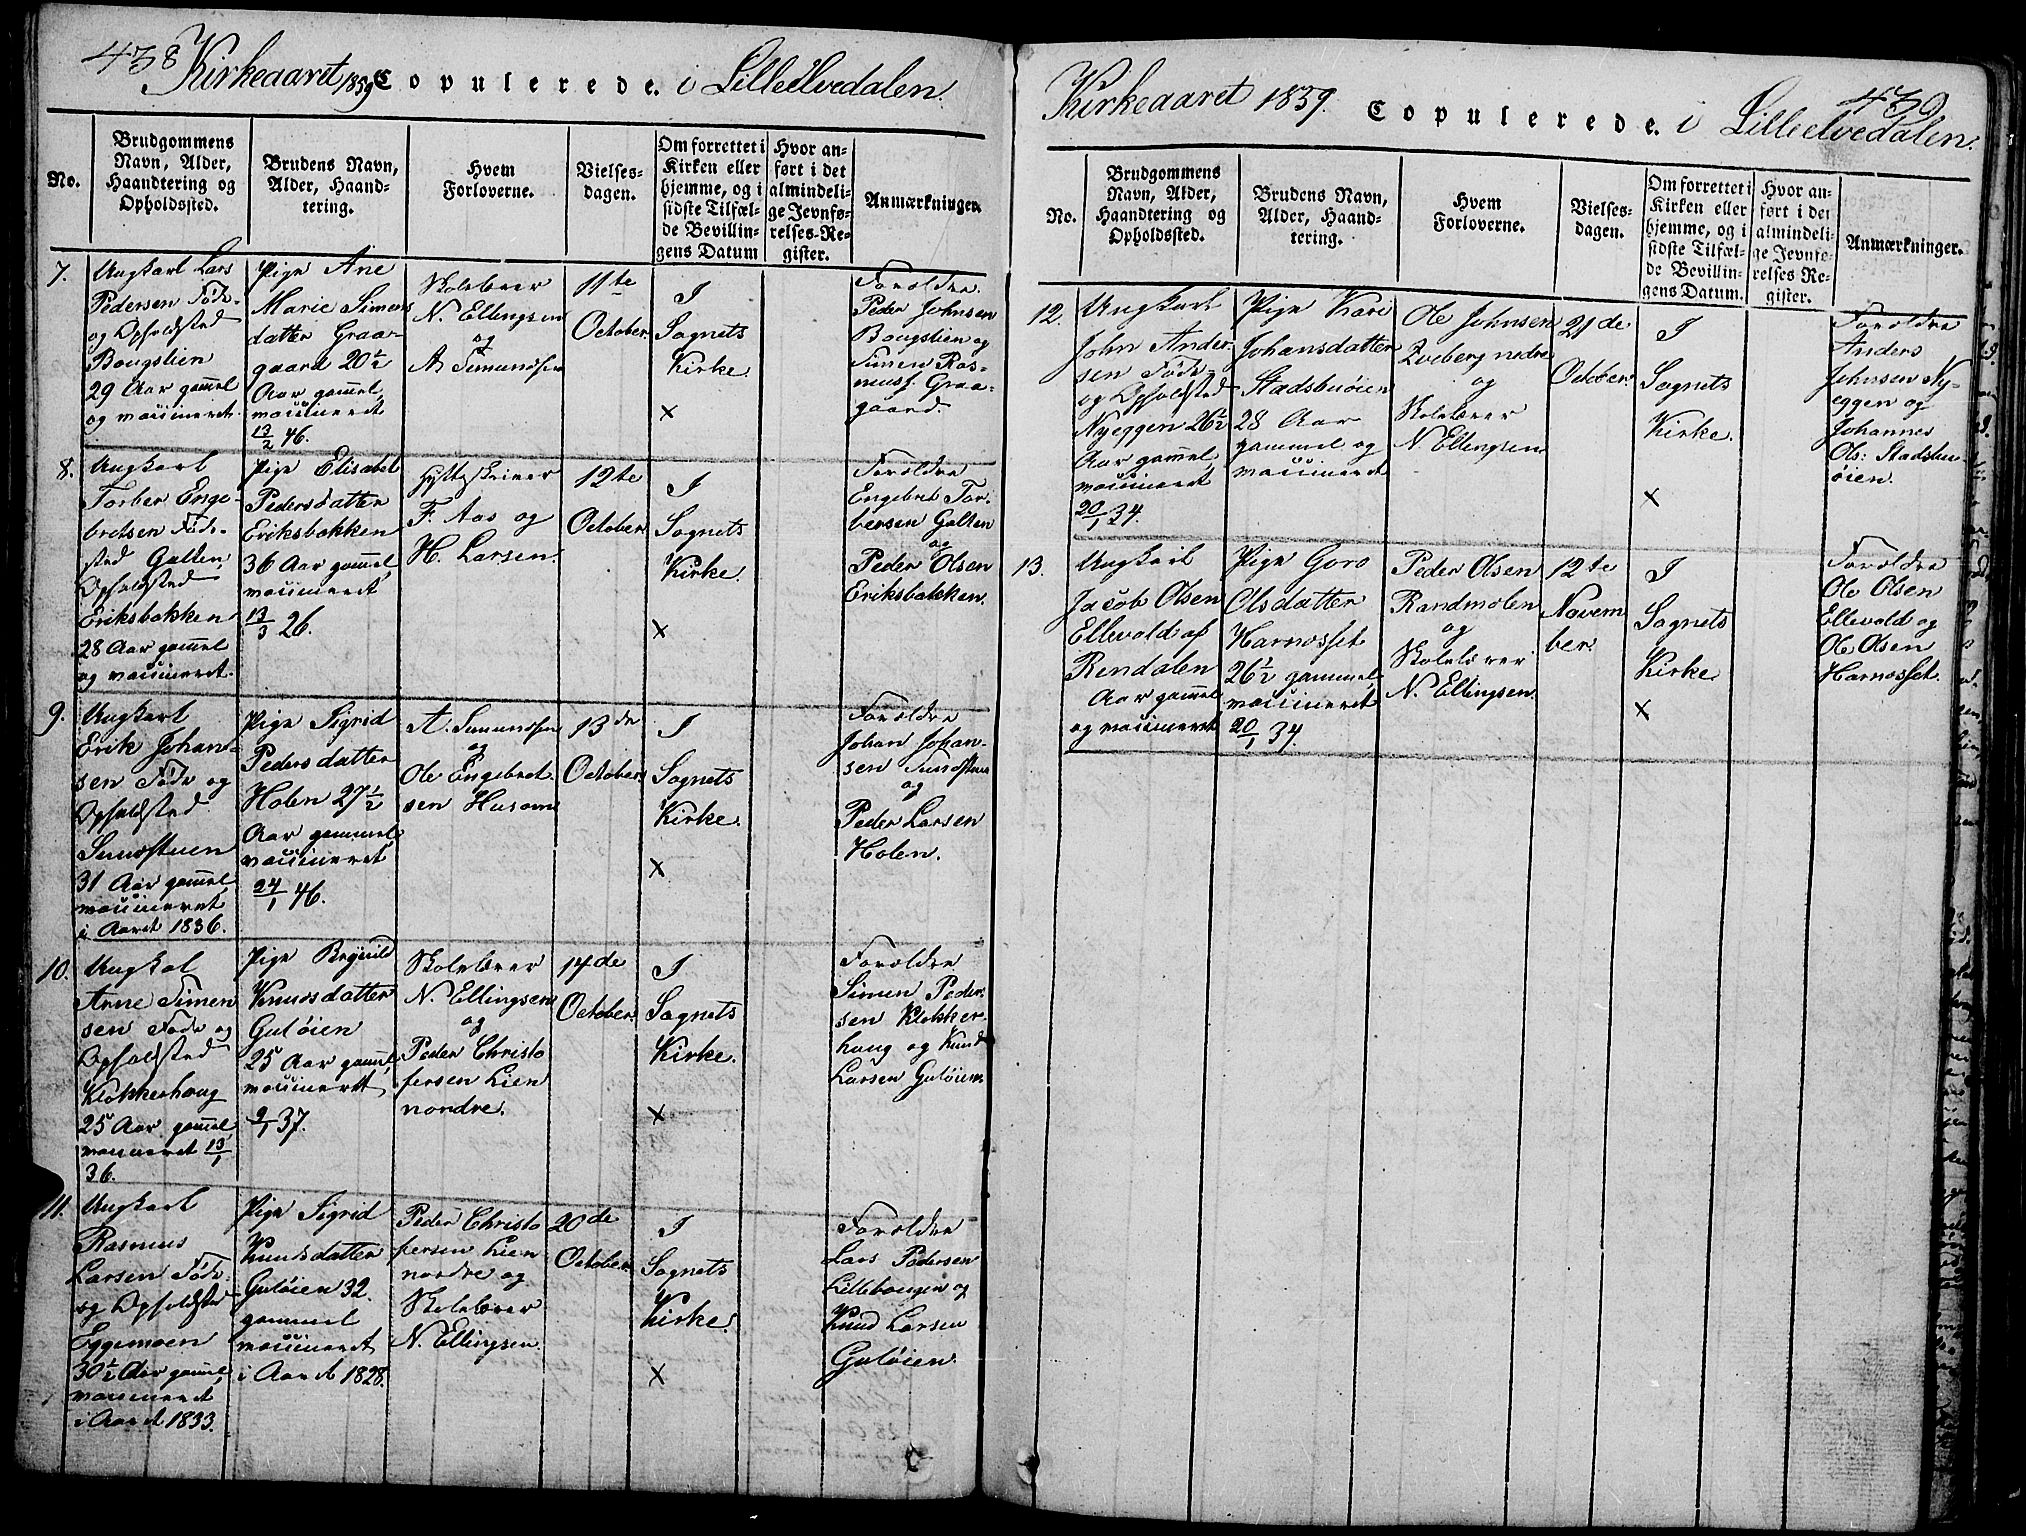 438 Kirkeaaret 1839 Copulerede. i Lilleelvedalen.
No.
Brudgommens
Navn, Alder,
Haandtering og
Opholdssted.
Brudens Navn,
Alder, Haand-
tering.
Hvem
Forloverne.
Vielses-
dagen.
Om forrettet i
Kirken eller
hjemme, og i
sidste Tilfæl-
de Bevillin-
gens Datum
Hvor an-
ført i det
almindeli-
ge Jevnfø-
relses-Re-
gister.
Anmærkninger.
7.
Ungkarl Lars
Pedersen Føde-
og Opholdsted
Bougslien
29 Aar gammel
og vaccineret.
Pige Ane
Marie Simens
datter Graa-
gaard 20½
Aar gammel,
vaccineret
13/2 46.
Skolelærer
N. Ellingsen
og
A. Simundsen
11te
October
I
Sognets
Kirke.
×
Forældre
Peder Johnsen
Bougslien og
Simen Ras-
muss. Graa-
gaard.
8.
Ungkarl
Torber Enge-
bretsen Føde-
sted Galten,
Opholdsted
Eriksbakken
28 Aar gammel
og vaccineret.
Pige Elisabet
Pedersdatter
Eriksbakken
36 Aar gammel
vaccineret
13/3 26.
Hytteskriver
F. Aas og
H. Larsen.
12te
October
I
Sognets
Kirke.
×
Forældre
Engebret Tor-
bersen Galten
og
Peder Olsen
Eriksbakken.
9.
Ungkarl
Erik Johan-
sen Føde og
Opholdsted
Sundstuen
31 Aar gammel
vaccineret
i Aaret 1836.
Pige Sigrid
Pedersdatter
Holen 27½
Aar gammel
vaccineret
24/1 46.
A. Simundsen
og
Ole Engebret-
sen Husom
13de
October
I
Sognets
Kirke.
×
Forældre
Johan Johan-
sen Sundstuen
og
Peder Larsen
Holen.
10.
Ungkal
Arne Simen
sen Føde og
Opholdsted
Klokkerhaug
25 Aar gammel
vaccineret 13/1
36.
Pige Brynild
Knudsdatter
Guløien
25 Aar gammel,
vaccineret
9/1 37.
Skolelærer
N. Ellingsen
og
Peder Christo
fersen Lien
nordre.
14de
October.
I
Sognets
Kirke.
×
Forældre
Simen Peder-
sen Klokker-
haug og Knud
Larsen Guløien
11.
Ungkarl
Rasmus
Larsen Føde-
og Opholdsted
Eggemoen
30½ Aar gammel,
vaccineret
i Aaret 1833.
Pige Sigrid
Knudsdatter
Guløien 32.
gammel
vaccineret
i Aaret 1828.
Peder Christo
fersen Lien
nordre og
Skolelærer
N. Ellingsen
20de
October
I
Sognets
Kirke.
×
Forældre
Lars Pedersen
Lillebougen og
Knud Larsen
Guløien.
Kirkeaaret 1839. Copulerede. i Lilleelvedalen. 439
No.
Brudgommens
Navn, Alder,
Haandtering og
Opholdssted.
Brudens Navn,
Alder, Haand-
tering.
Hvem
Forloverne.
Vielses-
dagen.
Om forrettet i
Kirken eller
hjemme, og i
sidste Tilfæl-
de Bevillin-
gens Datum.
Hvor an-
ført i det
almindeli-
ge Jevnfø-
relses Re-
gister.
Anmærkninger.
12.
Ungkarl
John Ander-
sen Føde-
og Opholdsted
Nyeggen 26½
Aar gammel,
vaccineret
20/1 34.
Pige Kari
Johansdatter
Stadsbuøien
28 Aar
gammel og
vaccineret
Ole Johnsen
Qveberg nedre
og
Skolelærer
N. Ellingsen
21de
October.
I
Sognets
Kirke.
×
Forældre
Anders
Johnsen Ny-
eggen og
Johannes
Ols: Stadsbu-
øien.
13.
Ungkarl
Jacob Olsen
Ellevold af
Rendalen
Aar gammel
og vaccineret
Pige Goro
Olsdatter
Harnosset
26½ gammel,
vaccineret
20/1 34.
Peder Olsen
Randmolen
og
Skolelærer
N. Ellingsen.
12te
Novem
ber.
I
Sognets
Kirke.
×
Forældre
Ole Olsen
Ellevold og
Ole Olsen
Harnosset.